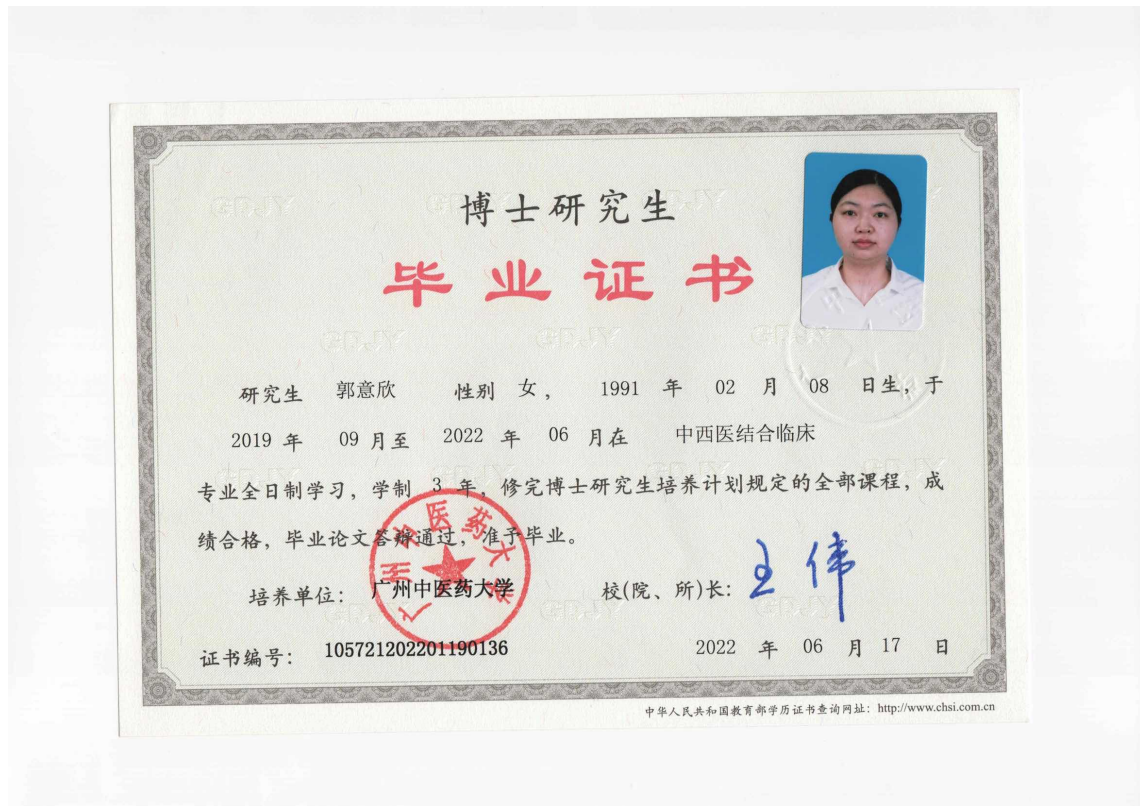 博士研究生
毕业证书
研究生 郭意欣 性别 女， 1991 年 02 月 08 日生，于
2019 年 09 月至 2022 年 06 月在 中西医结合临床
专业全日制学习，学制 3 年，修完博士研究生培养计划规定的全部课程，成
绩合格，毕业论文答辩通过，准予毕业。
培养单位： 广州中医药大学 校(院、所)长： 王伟
广州中医药大学
证书编号： 105721202201190136 2022 年 06 月 17 日
中华人民共和国教育部学历证书查询网址：http://www.chsi.com.cn